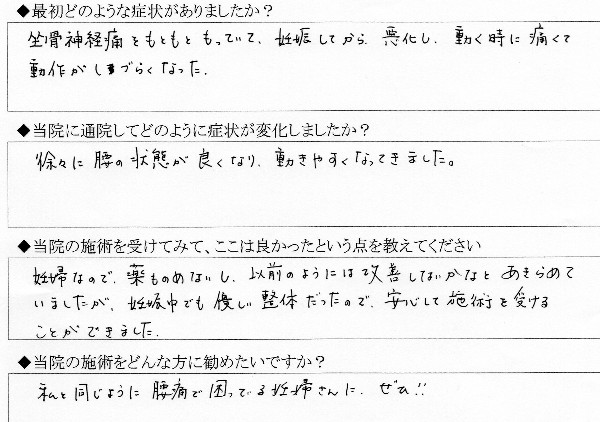 ◆最初どのような症状がありましたか?
坐骨神経痛をもともともっていて、妊娠してから悪化し、動く時に痛くて
動作がしづらくなった.
◆当院に通院してどのように症状が変化しましたか?
徐々に腰の状態が良くなり、動きやすくなってきました。
◆当院の施術を受けてみて、ここは良かったという点を教えてください
妊婦なので、薬ものめないし、以前のようには改善しないかなとあきらめて
いましたが、妊娠中でも優しい整体だったので、安心して施術を受ける
ことができました.
◆当院の施術をどんな方に勧めたいですか?
私と同じように腰痛で困っている妊婦さんに、ぜひ!!